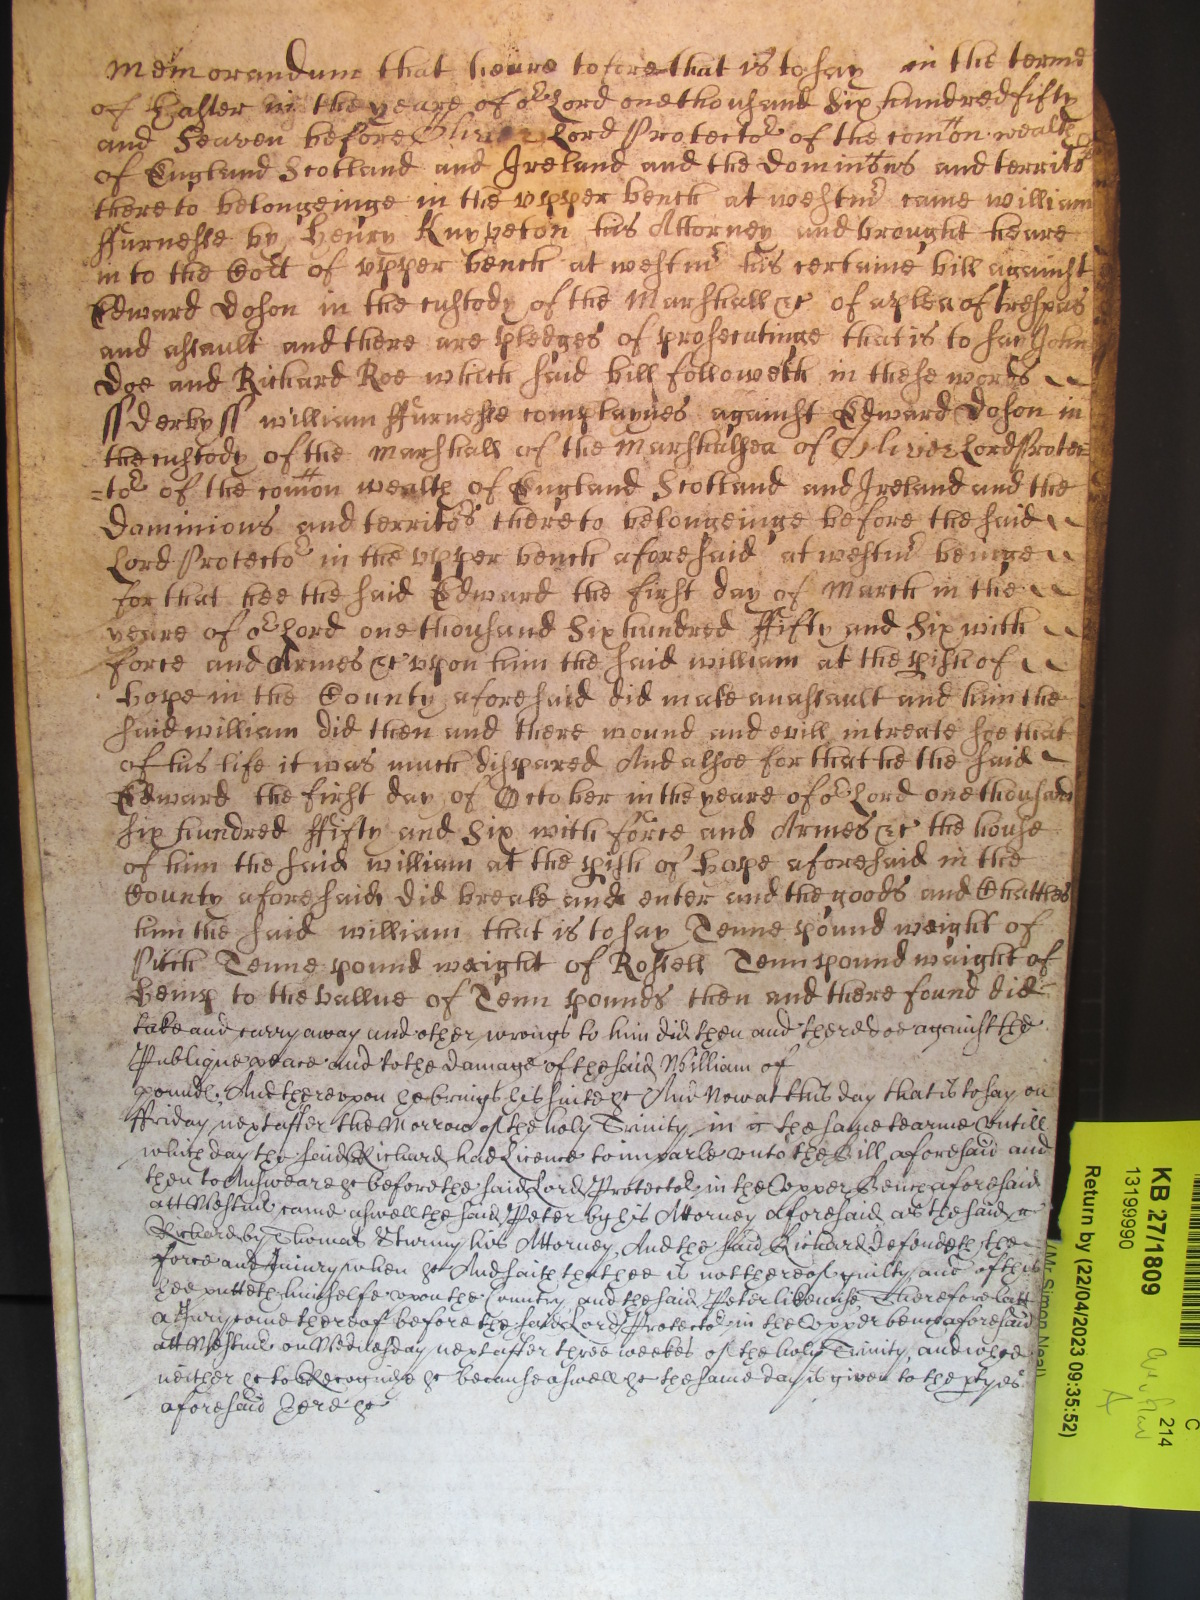 Memorandum that heare tofore that is to say in the terme
of Easter in the yeare of or Lord one thousand Six hundred fifty
and Seaven before Oliver Lord Protector of the comon wealth
of England Scotland and Ireland and the dominions and territors
there to belongeinge in the upper bench at westmr came william
ffurnesse by Henry Knyveton his Attorney and brought heare
in to the Cort of upper bench at westmr his certaine bill against
Edward Doson in the custody of the Marshall &c of a plea of trespas
and assault and there are pledges of prosecutinge that is to say John
Doe and Richard Roe which said bill followeth in these words
ss derby ss william ffurnesse complaynes against Edward Doson in
the custody of the Marshall of the Marshalsea of Oliver Lord Protec=
=tor of the comon wealth of England Scotland and Ireland and the
Dominions and territors there to belongeinge before the said
Lord Protector in the upper bench aforesaid at westmr beinge
for that hee the said Edward the first day of March in the
yeare of or Lord one thousand Six hundred ffifty and Six with
force and Armes &c upon him the said william at the pish of
Hope in the County aforesaid did make an assault and him the
said william did then and there wound and evill intreate soe that
of his life it was much dispared And alsoe for that he the said
Edward the first day of October in the yeare of or Lord one thousand
Six hundred ffifty and Six with force and Armes &c the house
of him the said william at the pish of Hope aforesaid in the
County aforesaid did breake and enter and the goods and Chattles
him the said william that is to say Tenne pound weight of
Pitch Tenne pound weight of Rossell Tenn pound waight of
Hemp to the vallue of Tenn pounds then and there found did
take and carry away and other wrongs to him did then and there doe against the
Publique peace and to the damage of the said William of
pounds. And thereupon he brings his suite &c And Now at this day that is to say on
ffriday next after the Morrow of the holy Trinity in the same tearme Untill
which day the said Richard had Licence to imparle unto the Bill aforesaid and
then to Answeare &c before the said Lord Protector in the Upper Bench aforesaid
att Westmr came aswell the said Peter by his Attorney aforesaid as the said
Richard by Thomas Sturmy his Attorney, And the said Richard defendeth the
force and Iniury when &c And saith that hee is not thereof guilty, and of this
hee putteth himselfe upon the Country, and the said Peter likewise Therefore lett
a Jury come thereof before the said Lord Protector in the Upper bench aforesaid
att Westmr on Wednesday next after three weekes of the holy Trinity, and whoe
neither &c to Recognise &c because aswell &c the same day is given to the ptyes
aforesaid here &c
KB 27/1809
13199990
Return by (22/04/2023 09:35:52)
Mr Simon Neal
C
214